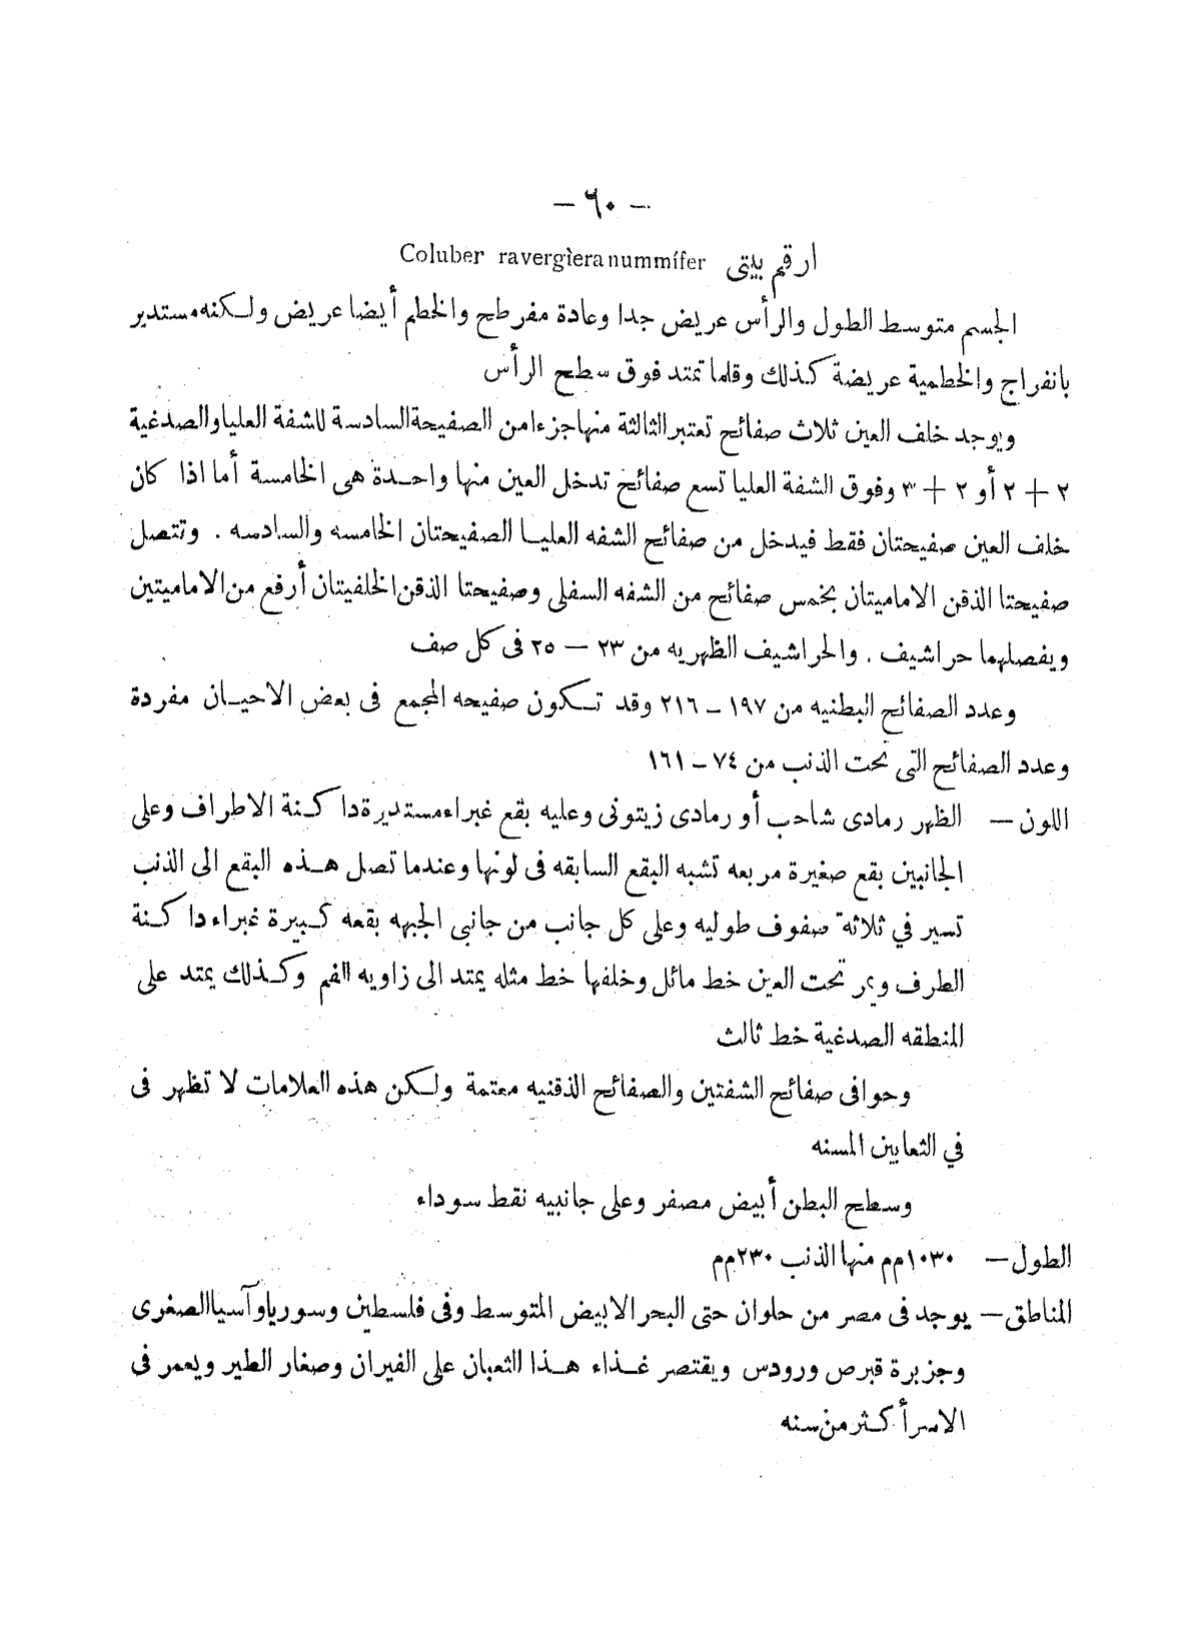 — ٦٠ —
ارقم بيتى Coluber ravergiera nummifer
الجسم متوسط الطول والرأس عريض جدا وعادة مفرطح والخطم أيضا عريض ولكنه مستدير
بانفراج والخطمية عريضة كذلك وقلما تمتد فوق سطح الرأس
ويوجد خلف العين ثلاث صفائح تعتبر الثالثة منها جزءا من الصفيحة السادسة للشفة العليا والصدغية
٢ + ٢ أو ٢ + ٣ وفوق الشفة العليا تسع صفائح تدخل العين منها واحدة هى الخامسة أما اذا كان
خلف العين صفيحتان فقط فيدخل من صفائح الشفه العليا الصفيحتان الخامسه والسادسه . وتتصل
صفيحتا الذقن الاماميتان بخمس صفائح من الشفه السفلى وصفيحتا الذقن الخلفيتان أرفع من الاماميتين
ويفصلهما حراشيف . والحراشيف الظهريه من ٢٣ — ٢٥ فى كل صف
وعدد الصفائح البطنيه من ١٩٧ — ٢١٦ وقد تكون صفيحه المجمع فى بعض الاحيان مفردة
وعدد الصفائح التى تحت الذنب من ٧٤ — ١٦١
اللون — الظهر رمادى شاحب أو رمادى زيتونى وعليه بقع غبراء مستديرة داكنة الاطراف وعلى
الجانبين بقع صغيرة مربعه تشبه البقع السابقه فى لونها وعندما تصل هذه البقع الى الذنب
تسير في ثلاثة صفوف طوليه وعلى كل جانب من جانبى الجبهه بقعه كبيرة غبراء داكنة
الطرف ويمر تحت العين خط مائل وخلفها خط مثله يمتد الى زاويه الفم وكذلك يمتد على
المنطقه الصدغية خط ثالث
وحوافى صفائح الشفتين والصفائح الذقنيه معتمة ولكن هذه العلامات لا تظهر فى
في الثعابين المسنه
وسطح البطن أبيض مصفر وعلى جانبيه نقط سوداء
الطول — ١٠٣٠مم منها الذنب ٢٣٠مم
المناطق — يوجد فى مصر من حلوان حتى البحر الابيض المتوسط وفى فلسطين وسوريا وآسيا الصغرى
وجزيرة قبرص ورودس ويقتصر غذاء هذا الثعبان على الفيران وصغار الطير ويعمر فى
الاسر أكثر من سنه